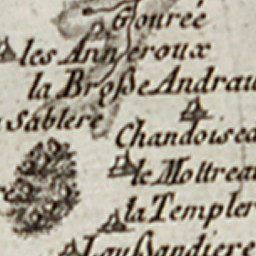 Gourée
les Anneroux
la Broße Andrau
Sablere
Chandoisea
le Moltrea
la Templer
Laußandiere